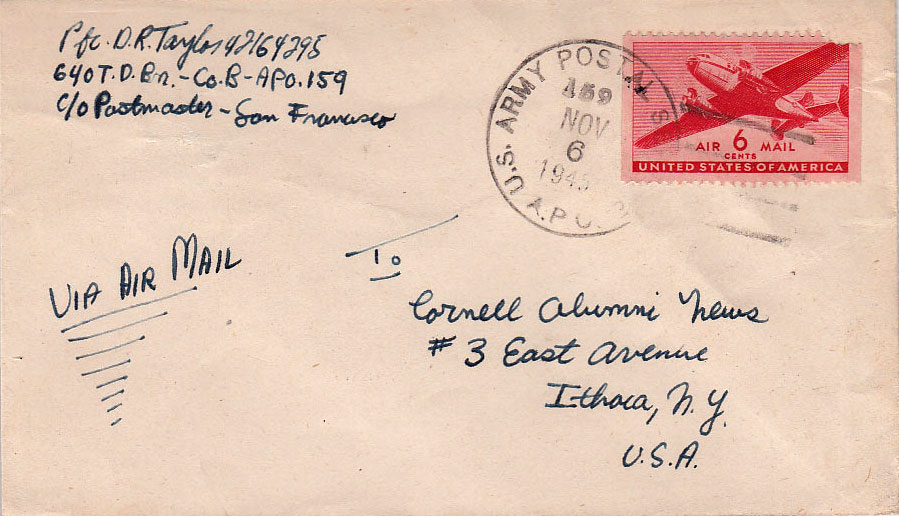 Pfc. D.R. Taylor 42164295
640 T.D.Bn.-Co.B-APO.159
c/o Postmaster-San Francisco
U.S. ARMY POSTAL S
159
NOV
6
1945
A.P.O.
AIR 6 MAIL
CENTS
UNITED STATES OF AMERICA
VIA AIR MAIL
To
Cornell Alumni News
# 3 East Avenue
Ithaca, N.Y.
U.S.A.